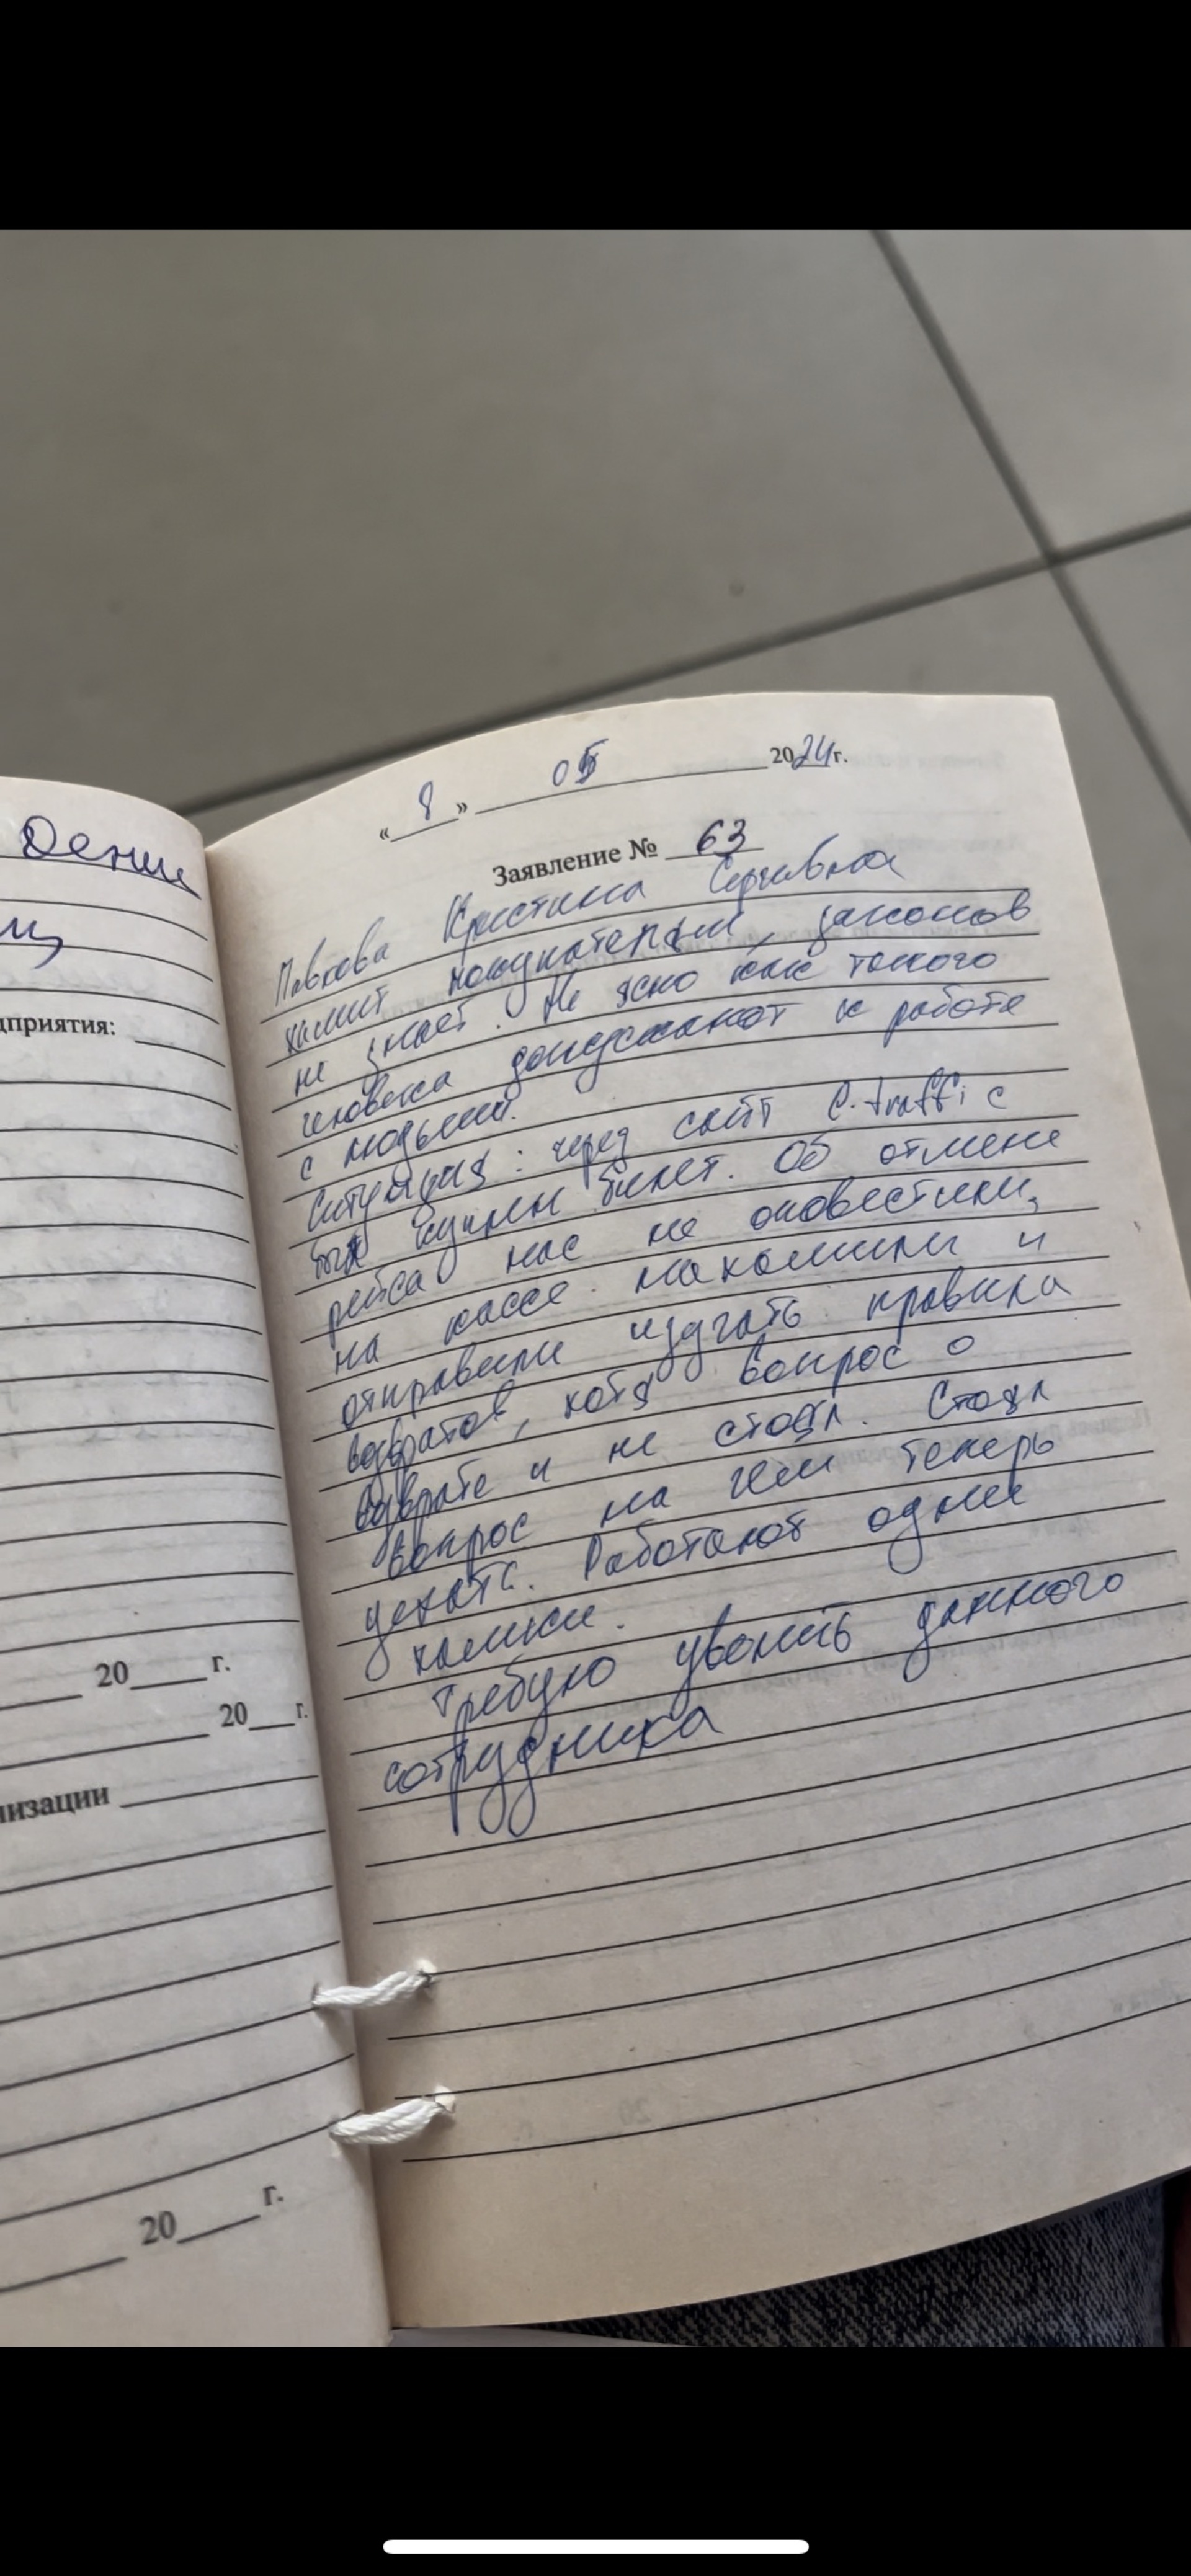 Дении
иц
дприятия:
20 г.
20 г.
низации
20 г.
« 8 » 05 2024г.
Заявление № 63
Павкова Кристина Сергеевна
хамит покупателям, законов
не знает. Не ясно как такого
человека допускают к работе
с людьми.
Ситуация: через сайт E-traffic
был куплен билет. Об отмене
рейса нас не оповестили,
на кассе нахамили и
отправили изучать правила
возвратов, хотя вопрос о
возврате и не стоял. Стоял
вопрос на чём теперь
уехать. Работают одни
хамки.
Требую уволить данного
сотрудника